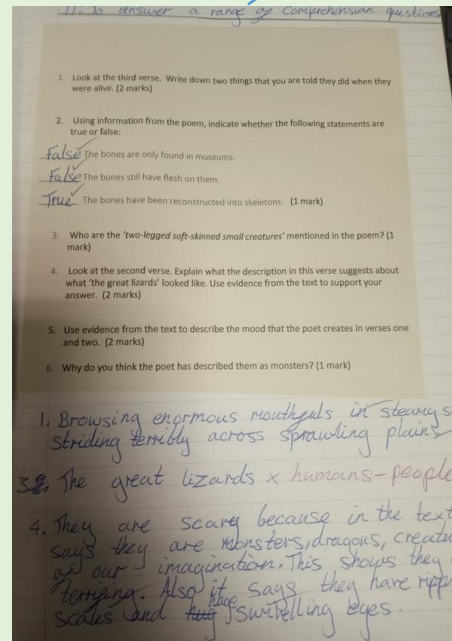 to answer a range of Comprehension questions
1. Look at the third verse. Write down two things that you are told they did when they
were alive. (2 marks)
2. Using information from the poem, indicate whether the following statements are
true or false:
False The bones are only found in museums.
False The bones still have flesh on them.
True The bones have been reconstructed into skeletons. (1 mark)
3. Who are the 'two-legged soft-skinned small creatures' mentioned in the poem? (1
mark)
4. Look at the second verse. Explain what the description in this verse suggests about
what 'the great lizards' looked like. Use evidence from the text to support your
answer. (2 marks)
5. Use evidence from the text to describe the mood that the poet creates in verses one
and two. (2 marks)
6. Why do you think the poet has described them as monsters? (1 mark)
1. Browsing enormous mouthfuls in steamy s
striding terribly across sprawling plains
3. The great lizards x humans-people
4. They are scary because in the text
says they are monsters, dragons, creatu
of our imagination. This shows they
terrifing. Also it says they have ripp
scales and have swivelling eyes.